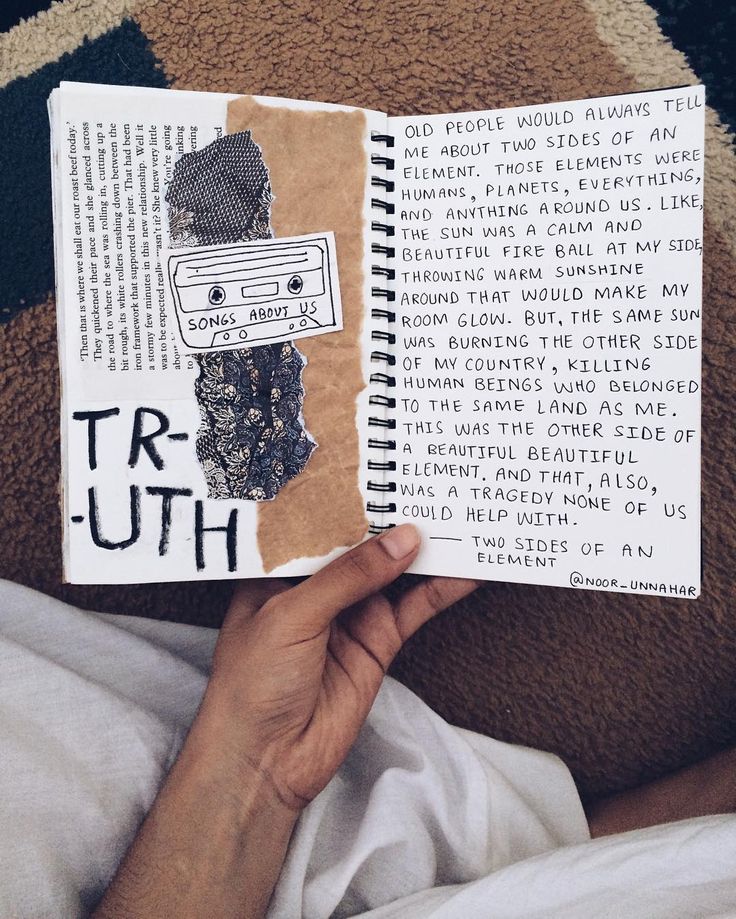 'Then that is where we shall eat our roast beef today.'
They quickened their pace and she glanced across
the road to where the sea was rolling in, cutting up a
bit rough, its white rollers crashing down between the
iron framework that supported the pier. That had been
a stormy few minutes in this new relationship. Well it
was to be expected really wasn't it? She knew very little
about
You're going
to
inking
vering
ed
SONGS ABOUT US
TR-
-UTH
OLD PEOPLE WOULD ALWAYS TELL
ME ABOUT TWO SIDES OF AN
ELEMENT. THOSE ELEMENTS WERE
HUMANS, PLANETS, EVERYTHING,
AND ANYTHING AROUND US. LIKE,
THE SUN WAS A CALM AND
BEAUTIFUL FIRE BALL AT MY SIDE,
THROWING WARM SUNSHINE
AROUND THAT WOULD MAKE MY
ROOM GLOW. BUT, THE SAME SUN
WAS BURNING THE OTHER SIDE
OF MY COUNTRY, KILLING
HUMAN BEINGS WHO BELONGED
TO THE SAME LAND AS ME.
THIS WAS THE OTHER SIDE OF
A BEAUTIFUL BEAUTIFUL
ELEMENT. AND THAT, ALSO,
WAS A TRAGEDY NONE OF US
COULD HELP WITH.
— TWO SIDES OF AN
ELEMENT
@NOOR_UNNAHAR